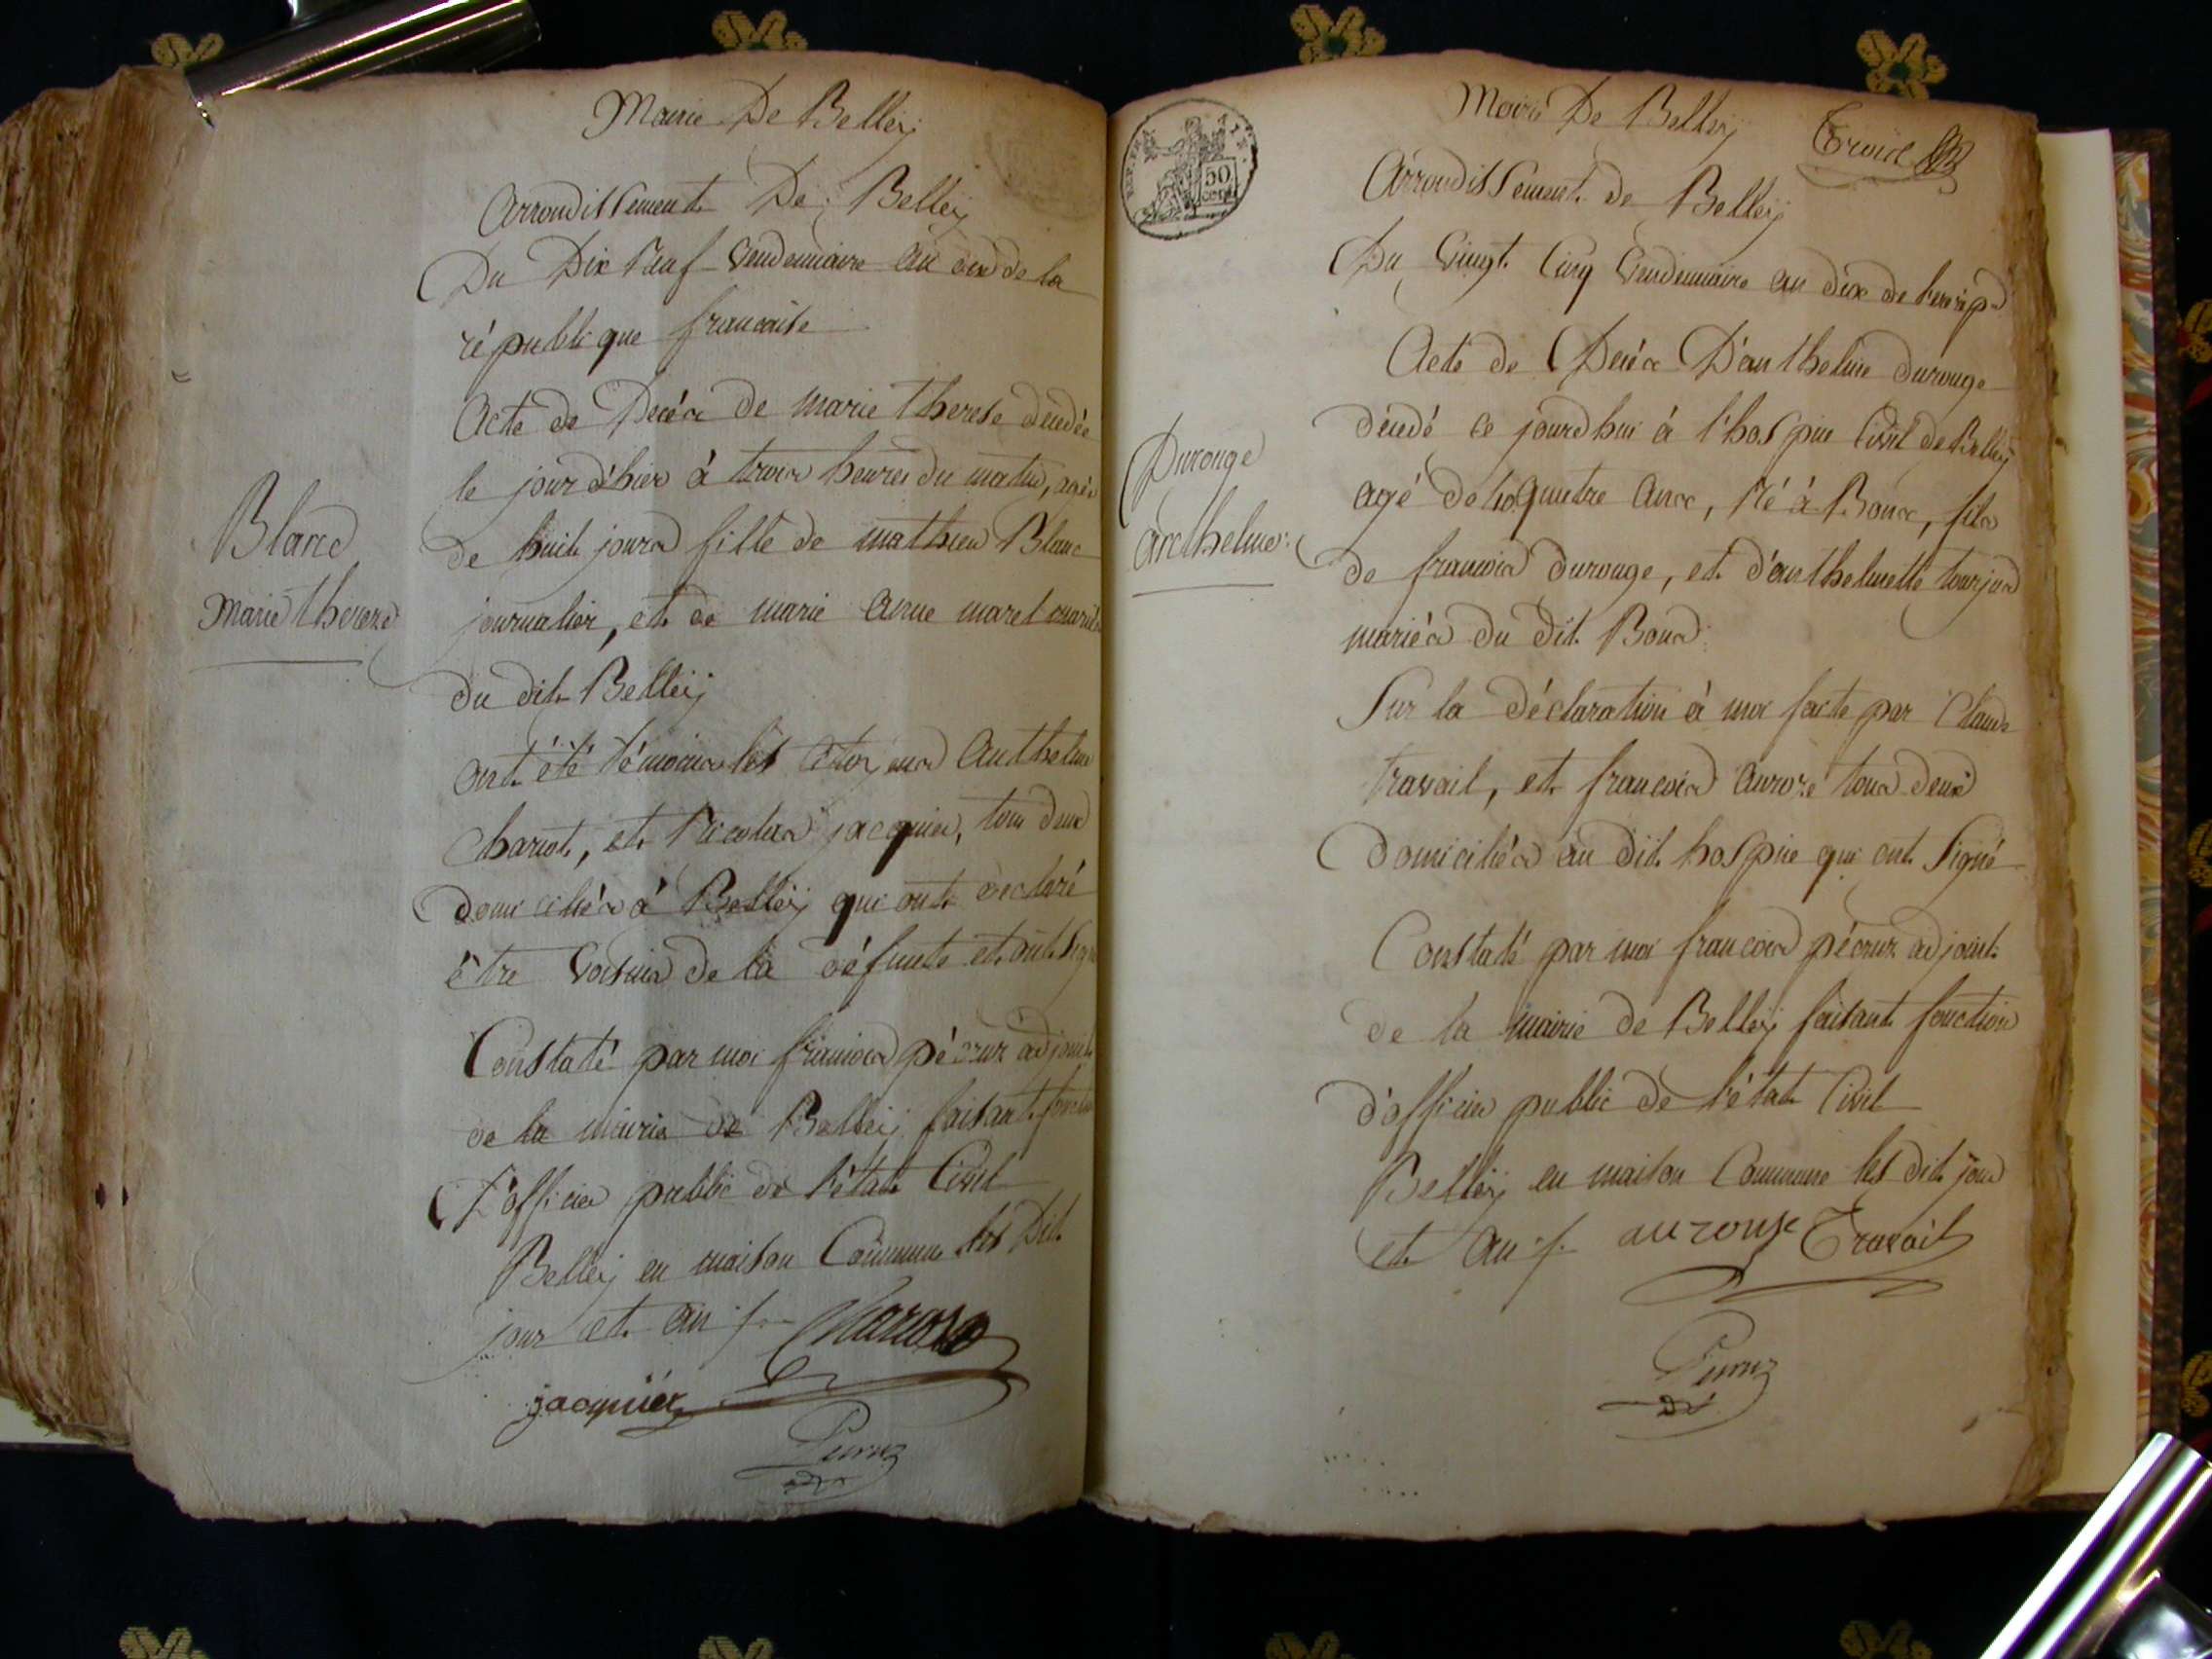 Mairie De Belleÿ
Arrondissement De Belleÿ
Du Dix Neuf Vendemiaire an dix de la
république francaise
Acte de Decés de marie therese décédée
le jour d'hier à trois heures du matin, agée
de huit jours fille de mathieu Blanc
journalier, et de marie anne maret mariés
du dit Belleÿ
ont été témoins les citoyens Anthelme
charvot, et Nicolas jacquier, tous deux
domiciliés à Belleÿ qui ont déclaré
être voisins de la défunte et ont signé
Constaté par moi francois adjoint
de la mairie de Belleÿ faisant fonction
D'officier public de l'état Civil
Belleÿ en maison Commune les Dit
jour et an
jacquier
Blanc
Marie therese
Mairie De Belleÿ
Arrondissement de Belleÿ
Du Vingt Cinq Vendemiaire an dix de
Acte de Décés D'anthelme durouge
décédé ce jourdhui à l'hospice Civil de Belleÿ
agé de quatre ans, Né à Bons, fils
de francois durouge, et d'anthelmette
mariés du dit Bons
Sur la déclaration à moi faite par Claude
travail, et francois tous deux
domiciliés au dit hospice qui ont Signé
Constaté par moi francois adjoint
de la mairie de Belleÿ faisant fonction
d'officier public de l'état Civil
Belleÿ en maison Commune les dit jour
et an Travail
Durouge
anthelme
50
cent.